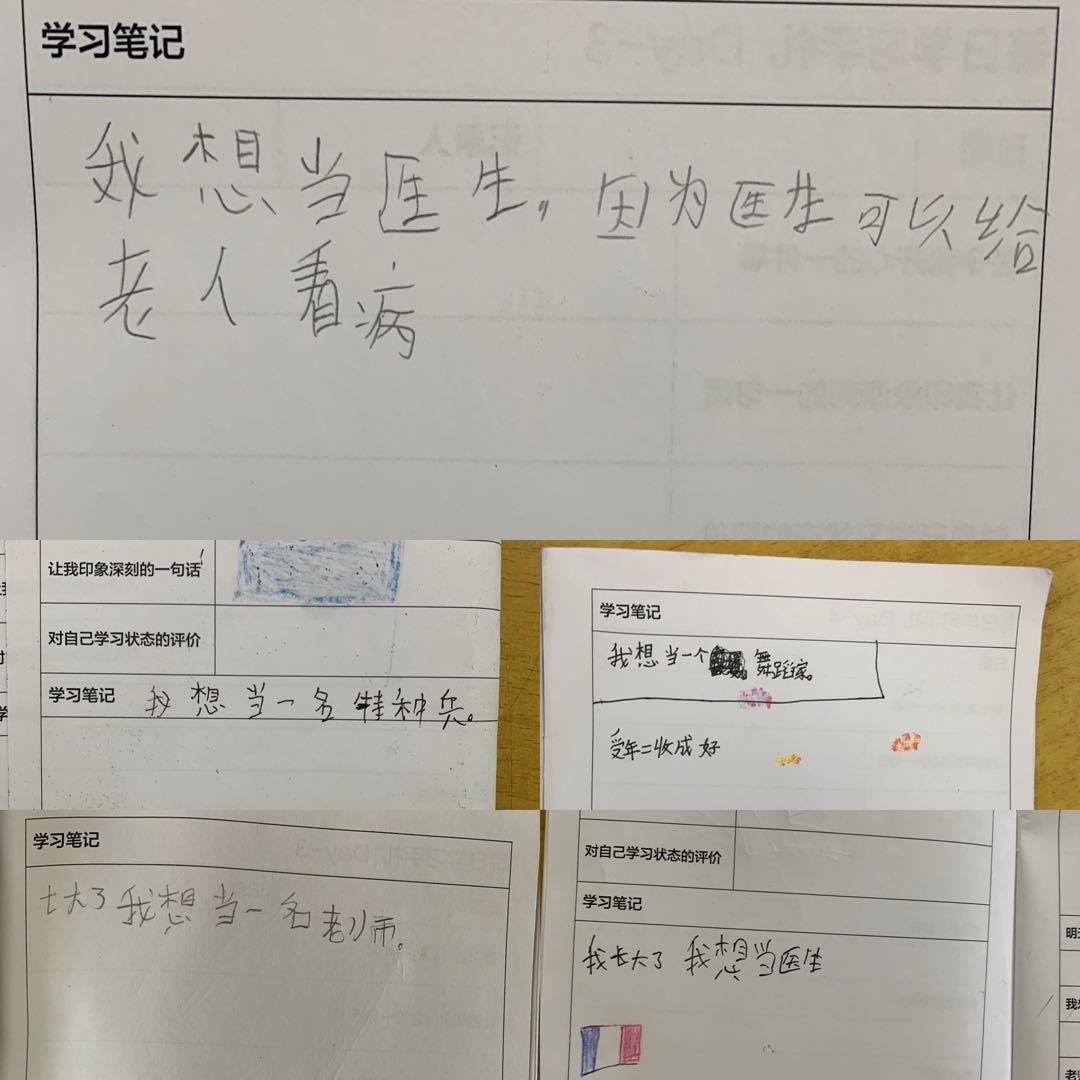 学习笔记
我想当医生。因为医生可以给
老人看病
让我印象深刻的一句话
对自己学习状态的评价
学习笔记
我想当一名特种兵。
学习笔记
我想当一个 舞蹈家。
受年二收成好
学习笔记
长大了我想当一名老师。
对自己学习状态的评价
学习笔记
我长大了 我想当医生